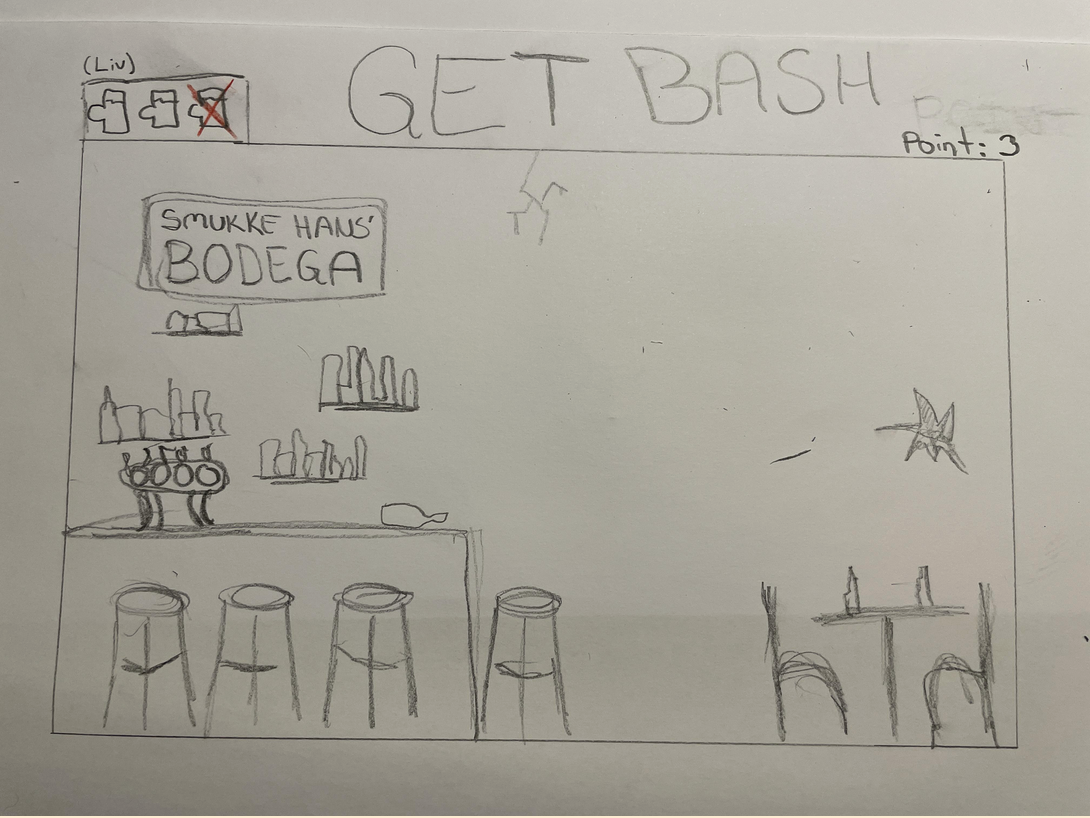 (Liv)
GET BASH
Point: 3
SMUKKE HANS'
BODEGA